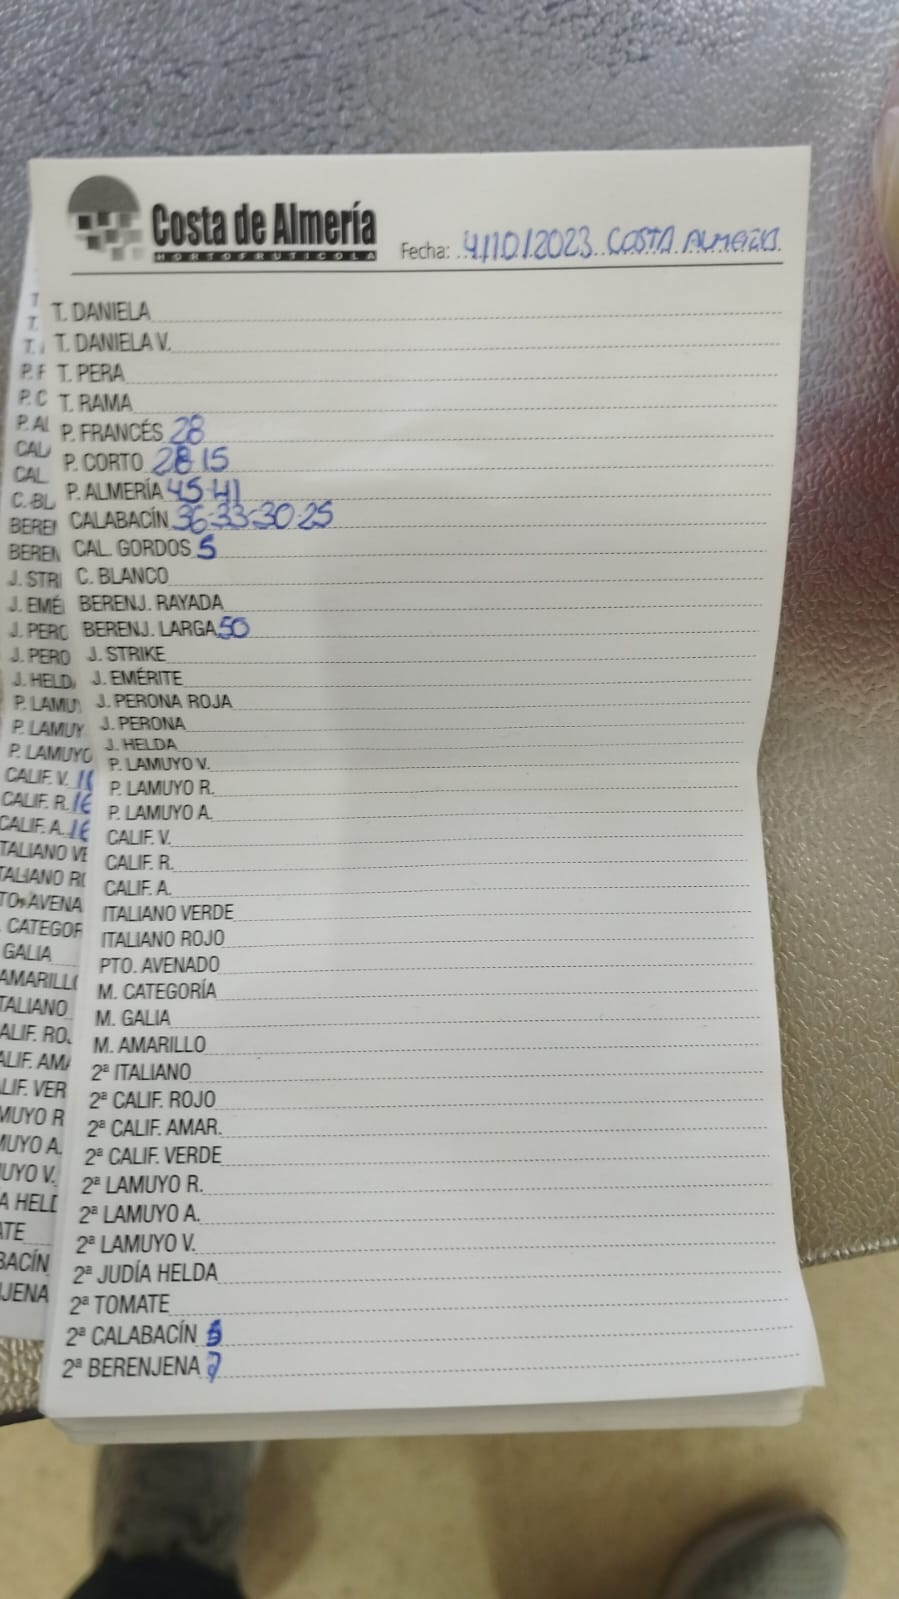 Costa de Almería
HORTOFRUTICOLA
Fecha: 4/10/2023 COSTA ALMERIA
T. DANIELA
T. DANIELA V.
T. PERA
T. RAMA
P. FRANCÉS 28
P. CORTO 28 15
P. ALMERÍA 45-41
CALABACÍN 36-33-30-25
CAL. GORDOS 5
C. BLANCO
BERENJ. RAYADA
BERENJ. LARGA 50
J. STRIKE
J. EMÉRITE
J. PERONA ROJA
J. PERONA
J. HELDA
P. LAMUYO V.
P. LAMUYO R.
P. LAMUYO A.
CALIF. V.
CALIF. R.
CALIF. A.
ITALIANO VERDE
ITALIANO ROJO
PTO. AVENADO
M. CATEGORÍA
M. GALIA
M. AMARILLO
2ª ITALIANO
2ª CALIF. ROJO
2ª CALIF. AMAR.
2ª CALIF. VERDE
2ª LAMUYO R.
2ª LAMUYO A.
2ª LAMUYO V.
2ª JUDÍA HELDA
2ª TOMATE
2ª CALABACÍN
2ª BERENJENA